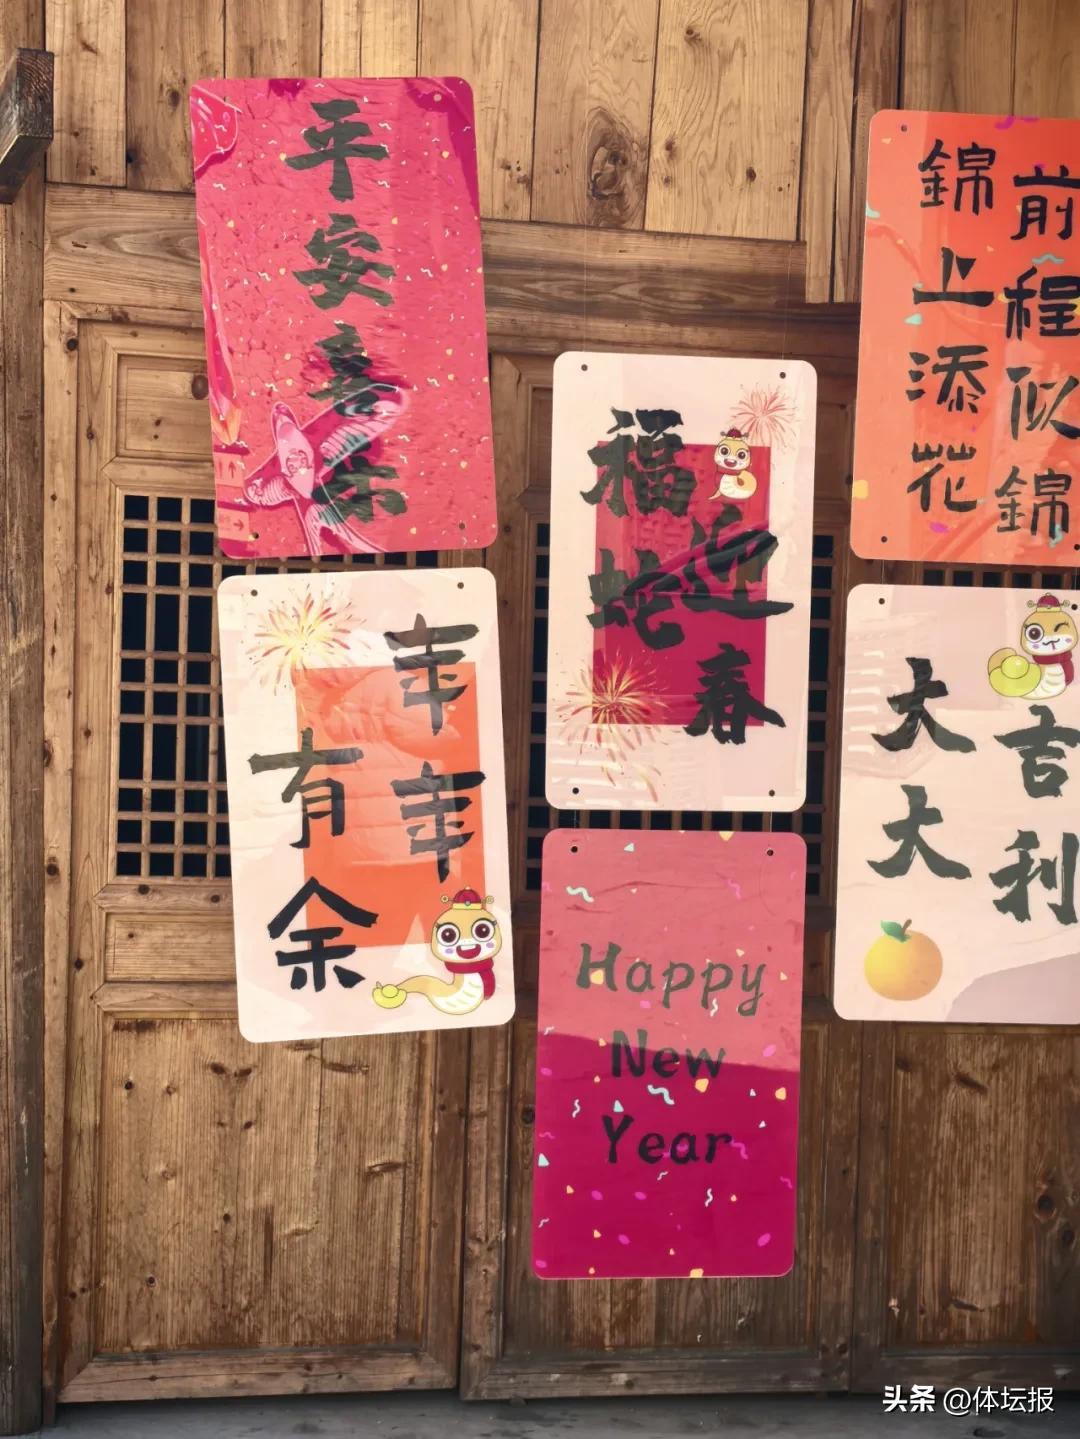 平安喜乐
年年
有余
福蛇
迎春
Happy
New
Year
前程似錦
錦上添花
大吉
大利
头条 @体坛报